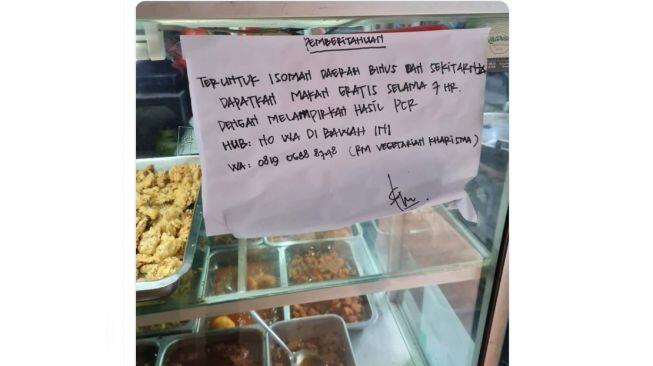 PEMBERITAHUAN
TERUNTUK ISOMAN DAERAH BINUS DAN SEKITARNYA
DAPATKAN MAKAN GRATIS SELAMA 7 HR.
DENGAN MELAMPIRKAN HASIL PCR
HUB: NO WA DI BAWAH INI
WA: 0819 0688 8798 (RM VEGETARIAN KHARISMA)